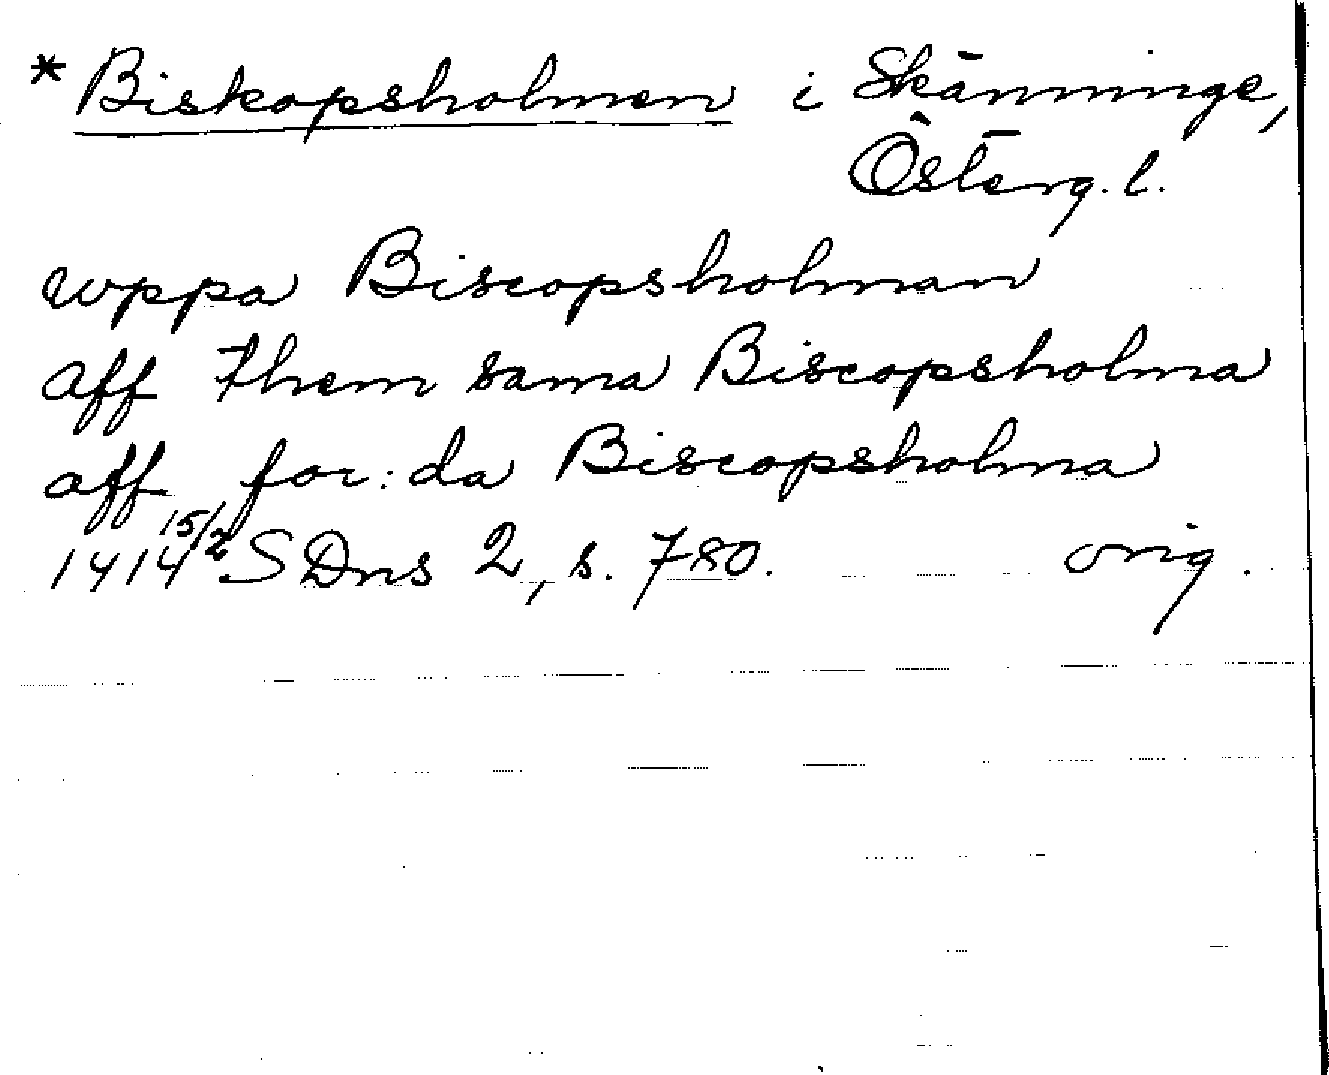 * Biskopsholmen i Skänninge,
Österg. l.
uppa Biscopsholman
aff them sama Biscopsholma
aff for:da Biscopsholma
1414 15/2 SDns 2, s. 780. orig.